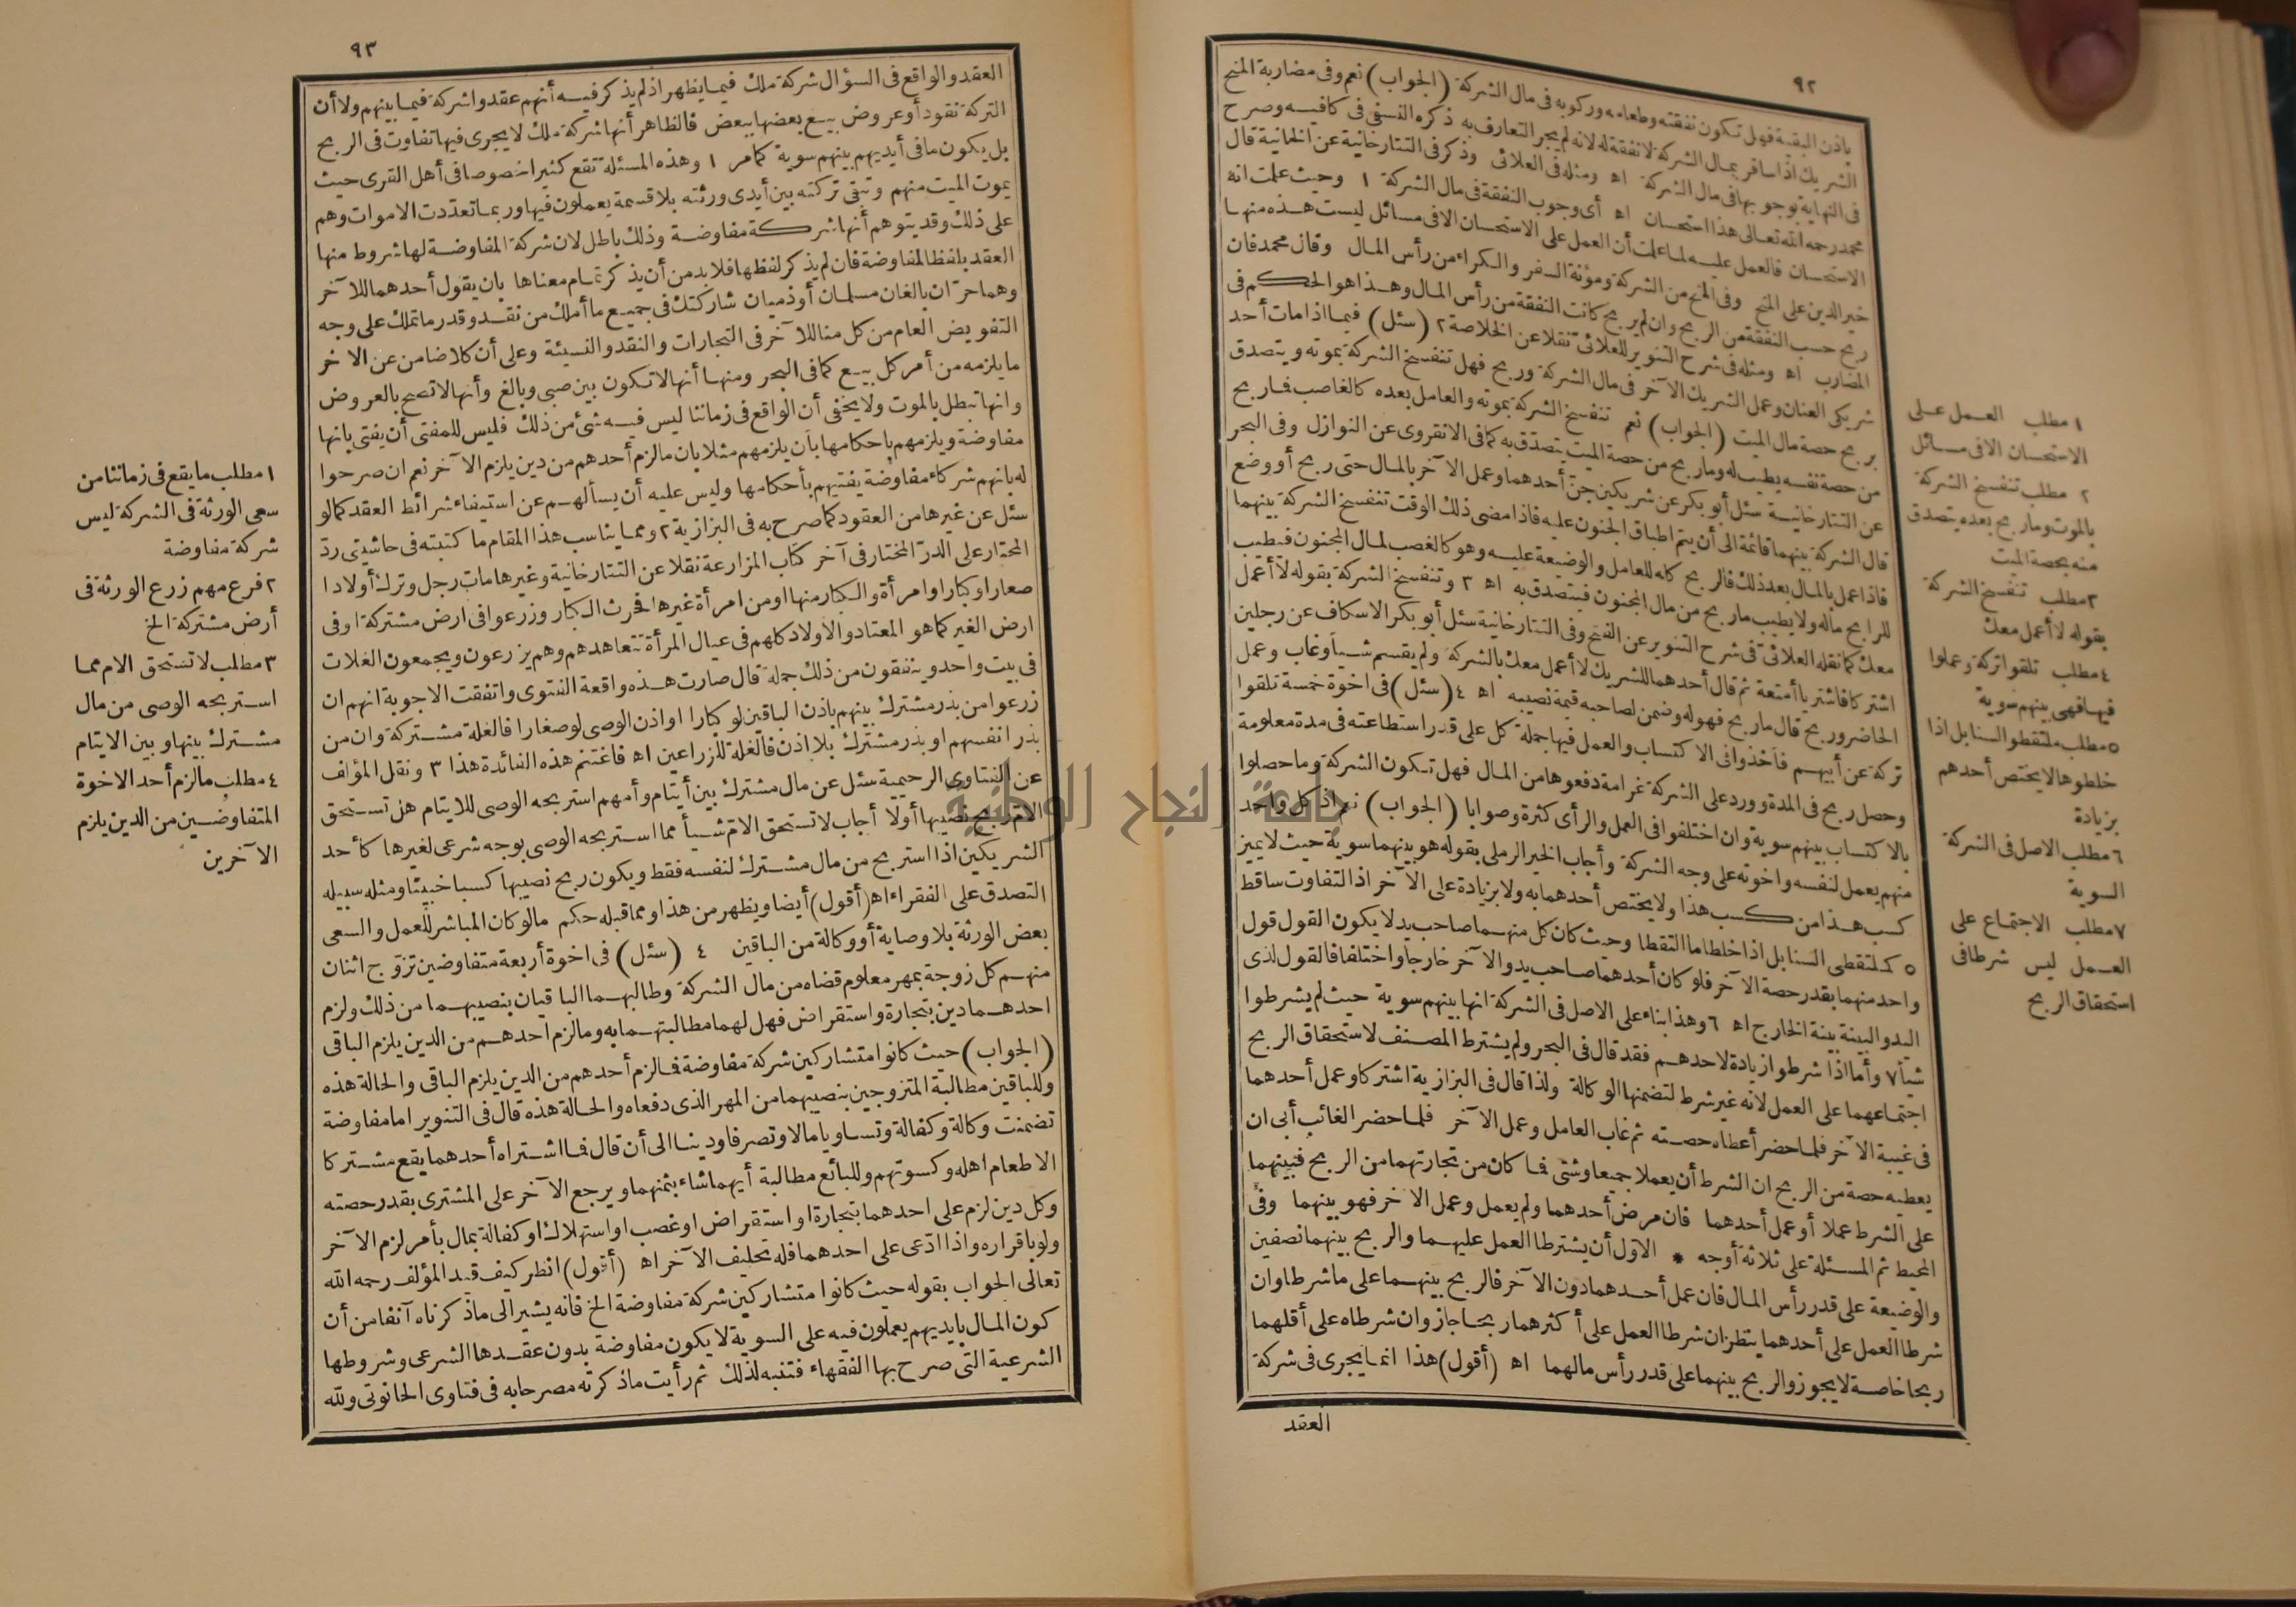 ٩٢
باذن البقية فهل تكون نفقته وطعامه وركوبه فى مال الشركة (الجواب) نعم وفى مضاربة المنح
الشريك اذا سافر بمال الشركة لا نفقة له لانه لم يجر التعارف به ذكره النسفى فى كافيه وصرح
فى النهاية بوجوبها فى مال الشركة اه ومثله فى العلائى وذكر فى التتارخانية عن الخانية قال
محمد رحمه الله تعالى هذا استحسان اه أى وجوب النفقة فى مال الشركة ١ وحيث علمت انه
الاستحسان فالعمل عليه لما علمت أن العمل على الاستحسان الا فى مسائل ليست هذه منها
خير الدين على المنح وفى المنح من الشركة ومؤنة السفر والكراء من رأس المال وقال محمد فان
ربح حسب النفقة من الربح وان لم يربح كانت النفقة من رأس المال وهذا هو الحكم فى
المضارب اه ومثله فى شرح التنوير للعلائى نقلا عن الخلاصة ٢ (سئل) فيما اذا مات أحد
شريكى العنان وعمل الشريك الآخر فى مال الشركة وربح فهل تنفسخ الشركة بموته ويتصدق
بربح حصة مال الميت (الجواب) نعم تنفسخ الشركة بموته والعامل بعده كالغاصب فما ربح
من حصة نفسه يطيب له وما ربح من حصة الميت يتصدق به كما فى الانقروى عن النوازل وفى البحر
عن التتارخانية سئل أبو بكر عن شريكين جن أحدهما وعمل الآخر بالمال حتى ربح أو وضع
قال الشركة بينهما قائمة الى أن يتم اطباق الجنون عليه فاذا مضى ذلك الوقت تنفسخ الشركة بينهما
فاذا عمل بالمال بعد ذلك فالربح كله للعامل والوضيعة عليه وهو كالغصب لمال المجنون فيطيب
للرابح ماله ولا يطيب ما ربح من مال المجنون فيتصدق به اه ٣ وتنفسخ الشركة بقوله لا أعمل
معك كما نقله العلائى فى شرح التنوير عن الفتح وفى التتارخانية سئل أبو بكر الاسكاف عن رجلين
اشتركا فاشتريا أمتعة ثم قال أحدهما للشريك لا أعمل معك بالشركة ولم يقسم شيأ وغاب وعمل
الحاضر وربح قال ما ربح فهو له وضمن لصاحبه قيمة نصيبه اه ٤ (سئل) فى اخوة خمسة تلقوا
تركة عن أبيهم فأخذوا فى الاكتساب والعمل فيها جملة كل على قدر استطاعته فى مدة معلومة
وحصل ربح فى المدة وورد على الشركة غرامة دفعوها من المال فهل تكون الشركة وما حصلوا
بالاكتساب بينهم سوية وان اختلفوا فى العمل والرأى كثرة وصوابا (الجواب) نعم اذ كل واحد
منهم يعمل لنفسه واخوته على وجه الشركة وأجاب الخير الرملى بقوله هو بينهما سوية حيث لا يميز
كسب هذا من كسب هذا ولا يختص أحدهما به ولا بزيادة على الآخر اذ التفاوت ساقط
٥ كملتقطى السنابل اذا خلطا ما التقطا وحيث كان كل منهما صاحب يد لا يكون القول قول
واحد منهما بقدر حصة الآخر فلو كان أحدهما صاحب يد والآخر خارجا واختلفا فالقول لذى
اليد والبينة بينة الخارج اه ٦ وهذا بناء على الاصل فى الشركة انها بينهم سوية حيث لم يشرطوا
شيأ ٧ وأما اذا شرطوا زيادة لاحدهم فقد قال فى البحر ولم يشترط المصنف لاستحقاق الربح
اجتماعهما على العمل لانه غير شرط لتضمنها الوكالة ولذا قال فى البزازية اشتركا وعمل أحدهما
فى غيبة الآخر فلما حضر أعطاه حصته ثم غاب العامل وعمل الآخر فلما حضر الغائب أبى ان
يعطيه حصة من الربح ان الشرط أن يعملا جميعا وشتى فما كان من تجارتهما من الربح فبينهما
على الشرط عملا أو عمل أحدهما فان مرض أحدهما ولم يعمل وعمل الآخر فهو بينهما وفى
المحيط ثم المسئلة على ثلاثة أوجه * الاول أن يشترطا العمل عليهما والربح بينهما نصفين
والوضيعة على قدر رأس المال فان عمل أحدهما دون الآخر فالربح بينهما على ما شرطا وان
شرطا العمل على أحدهما ينظر ان شرطا العمل على أكثرهما ربحا جاز وان شرطاه على أقلهما
ربحا خاصة لا يجوز والربح بينهما على قدر رأس مالهما اه (أقول) هذا انما يجرى فى شركة
العقد
١ مطلب العمل على
الاستحسان الا فى مسائل
٢ مطلب تنفسخ الشركة
بالموت وما ربح بعده يتصدق
منه بحصة الميت
٣ مطلب تنفسخ الشركة
بقوله لا أعمل معك
٤ مطلب تلقوا تركة وعملوا
فيها فهى بينهم سوية
٥ مطلب ملتقطو السنابل اذا
خلطوها لا يختص أحدهم
بزيادة
٦ مطلب الاصل فى الشركة
السوية
٧ مطلب الاجتماع على
العمل ليس شرطا فى
استحقاق الربح
٩٣
العقد والواقع فى السؤال شركة ملك فيما يظهر اذ لم يذكر فيه أنهم عقدوا شركة فيما بينهم ولا أن
التركة نقود أو عروض بيع بعضها ببعض فالظاهر أنها شركة ملك لا يجرى فيها تفاوت فى الربح
بل يكون ما فى أيديهم بينهم سوية كما مر ١ وهذه المسئلة تقع كثيرا خصوصا فى أهل القرى حيث
يموت الميت منهم وتبقى تركته بين أيدى ورثته بلا قسمة يعملون فيها وربما تعددت الاموات وهم
على ذلك وقد يتوهم أنها شركة مفاوضة وذلك باطل لان شركة المفاوضة لها شروط منها
العقد بلفظ المفاوضة فان لم يذكر لفظها فلا بد من أن يذكر تمام معناها بان يقول أحدهما للآخر
وهما حرّان بالغان مسلمان أو ذميان شاركتك فى جميع ما أملك من نقد وقدر ما تملك على وجه
التفويض العام من كل منا للآخر فى التجارات والنقد والنسيئة وعلى أن كلا ضامن عن الآخر
ما يلزمه من أمر كل بيع كما فى البحر ومنها أنها لا تكون بين صبى وبالغ وأنها لا تصح بالعروض
وانها تبطل بالموت ولا يخفى أن الواقع فى زماننا ليس فيه شئ من ذلك فليس للمفتى أن يفتى بانها
مفاوضة ويلزمهم باحكامها بان يلزمهم مثلا بان ما لزم أحدهم من دين يلزم الآخر نعم ان صرحوا
له بانهم شركاء مفاوضة يفتيهم بأحكامها وليس عليه أن يسألهم عن استيفاء شرائط العقد كما لو
سئل عن غيرها من العقود كما صرح به فى البزازية ٢ ومما يناسب هذا المقام ما كتبته فى حاشيتى ردّ
المحتار على الدرّ المختار فى آخر كتاب المزارعة نقلا عن التتارخانية وغيرها مات رجل وترك أولادا
صغارا وكبارا وامرأة والكبار منها او من امرأة غيرها فحرث الكبار وزرعوا فى ارض مشتركة او فى
ارض الغير كما هو المعتاد والاولاد كلهم فى عيال المرأة تتعاهدهم وهم يزرعون ويجمعون الغلات
فى بيت واحد وينفقون من ذلك جملة قال صارت هذه واقعة الفتوى واتفقت الاجوبة انهم ان
زرعوا من بذر مشترك بينهم باذن الباقين لو كبارا او اذن الوصى لو صغارا فالغلة مشتركة وان من
بذر انفسهم او بذر مشترك بلا اذن فالغلة للزراعين اه فاغتنم هذه الفائدة هذا ٣ ونقل المؤلف
عن الفتاوى الرحيمية سئل عن مال مشترك بين أيتام وأمهم استربحه الوصى للايتام هل تستحق
الام ربح نصيبها أولا أجاب لا تستحق الام شيأ مما استربحه الوصى بوجه شرعى لغيرها كأحد
الشريكين اذا استربح من مال مشترك لنفسه فقط ويكون ربح نصيبها كسبا خبيثا ومثله سبيله
التصدق على الفقراء اه (أقول) أيضا ويظهر من هذا ومما قبله حكم ما لو كان المباشر للعمل والسعى
بعض الورثة بلا وصاية أو وكالة من الباقين ٤ (سئل) فى اخوة أربعة متفاوضين تزوّج اثنان
منهم كل زوجة بمهر معلوم قضاه من مال الشركة وطالبهما الباقيان بنصيبهما من ذلك ولزم
احدهما دين بتجارة واستقراض فهل لهما مطالبتهما به وما لزم احدهم من الدين يلزم الباقى
(الجواب) حيث كانوا متشاركين شركة مفاوضة فما لزم أحدهم من الدين يلزم الباقى والحالة هذه
وللباقين مطالبة المتزوجين بنصيبهما من المهر الذى دفعاه والحالة هذه قال فى التنوير اما مفاوضة
تضمنت وكالة وكفالة وتساويا مالا وتصرفا ودينا الى أن قال فما اشتراه أحدهما يقع مشتركا
الا طعام اهله وكسوتهم وللبائع مطالبة أيهما شاء بثمنهما ويرجع الآخر على المشترى بقدر حصته
وكل دين لزم على احدهما بتجارة او استقراض او غصب او استهلاك او كفالة بمال بأمر لزم الآخر
ولو باقراره واذا ادّعى على احدهما فله تحليف الآخر اه (أقول) انظر كيف قيد المؤلف رحمه الله
تعالى الجواب بقوله حيث كانوا متشاركين شركة مفاوضة الخ فانه يشير الى ما ذكرناه آنفا من أن
كون المال بايديهم يعملون فيه على السوية لا يكون مفاوضة بدون عقدها الشرعى وشروطها
الشرعية التى صرح بها الفقهاء فتنبه لذلك ثم رأيت ما ذكرته مصرحا به فى فتاوى الحانوتى ولله
١ مطلب ما يقع فى زماننا من
سعى الورثة فى الشركة ليس
شركة مفاوضة
٢ فرع مهم زرع الورثة فى
أرض مشتركة الخ
٣ مطلب لا تستحق الام مما
استربحه الوصى من مال
مشترك بينها وبين الايتام
٤ مطلب ما لزم أحد الاخوة
المتفاوضين من الدين يلزم
الآخرين
جامعة النجاح الوطنية